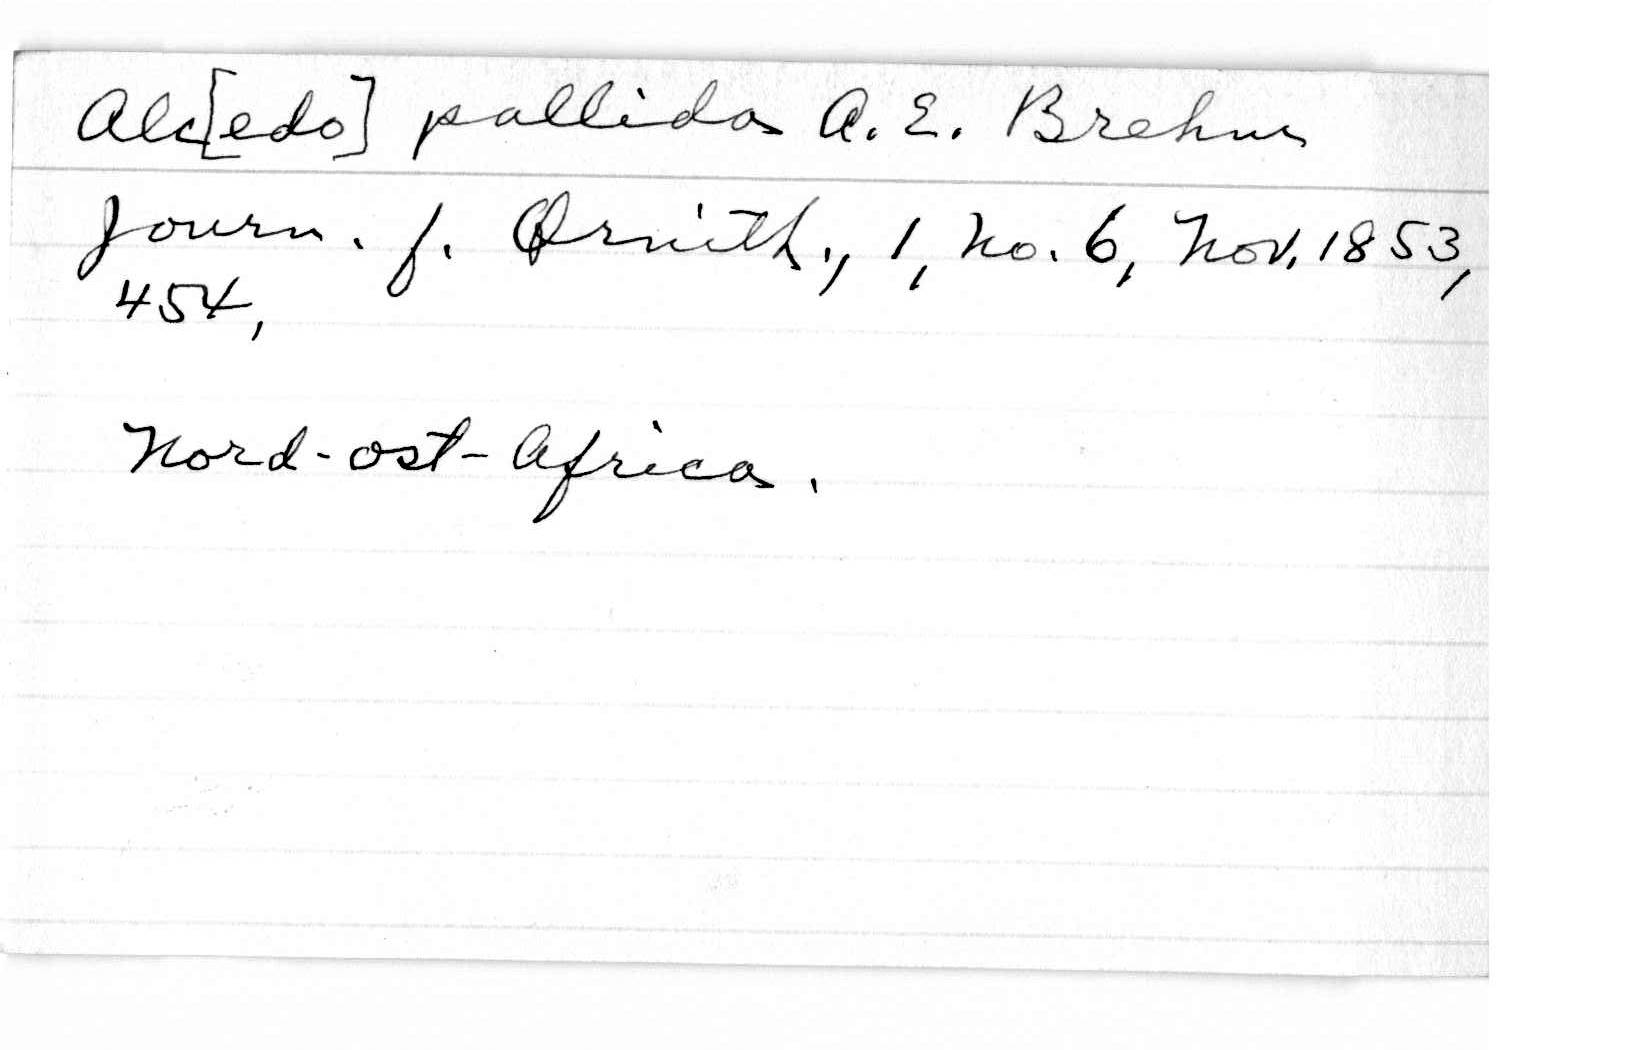 Alc[edo] pallida A. E. Brehm
Journ. f. Ornith., 1, no. 6, Nov. 1853,
454.
Nord-ost-Africa.